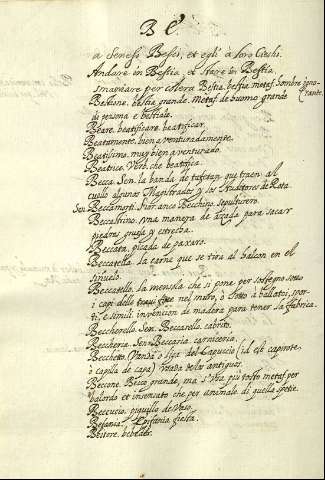 B E.
a Senesi Besci, et egli a loro Ciechi.
Andare in Bestia, et stare in Bestia,
smaniare per colera Bestia. bestia. metaf. hombre igno-
rante.
Bestione. bestia grande. metaf. de buomo grande
di persona e bestiale.
Beare. beatificare. beatificar.
Beatamente. bienaventuradamente.
Beatissimo. muy bienaventurado.
Beatrice. Verb. che beatifica.
Becca. Sen. la banda de tafetan que traen al
cuello algunos Magistrados y los Auditores de Rota.
Sen. Beccamorti. Fior. anco Becchino. sepulturero.
Beccastrino. una manera de azada para sacar
piedras, gruesa y estrecha.
Beccata. picada de paxaro.
Beccatella. la carne que se tira al halcon en el
señuelo.
Beccatello. la mensola che si pone per sostegno sotto
i capi delle travi fitte nel muro, o sotto a ballatoi, spor-
ti, e simili. invencion de madera para tener la fabrica.
Beccherello. Sen. Beccarello. cabrito.
Beccheria. Sen. Beccaria. carniceria.
Becchetto. Vanda o liga del Capuccio (id est capirote,
o capilla de capa) usada de los antiguos.
Beccone. Becco grande, ma s'usa più tosto metaf. per
balordo et insensato che per animale di quella spetie.
Beccuccio. piquillo de vaso.
Befania. Epifania, fiesta.
Bevitore. bebedor.